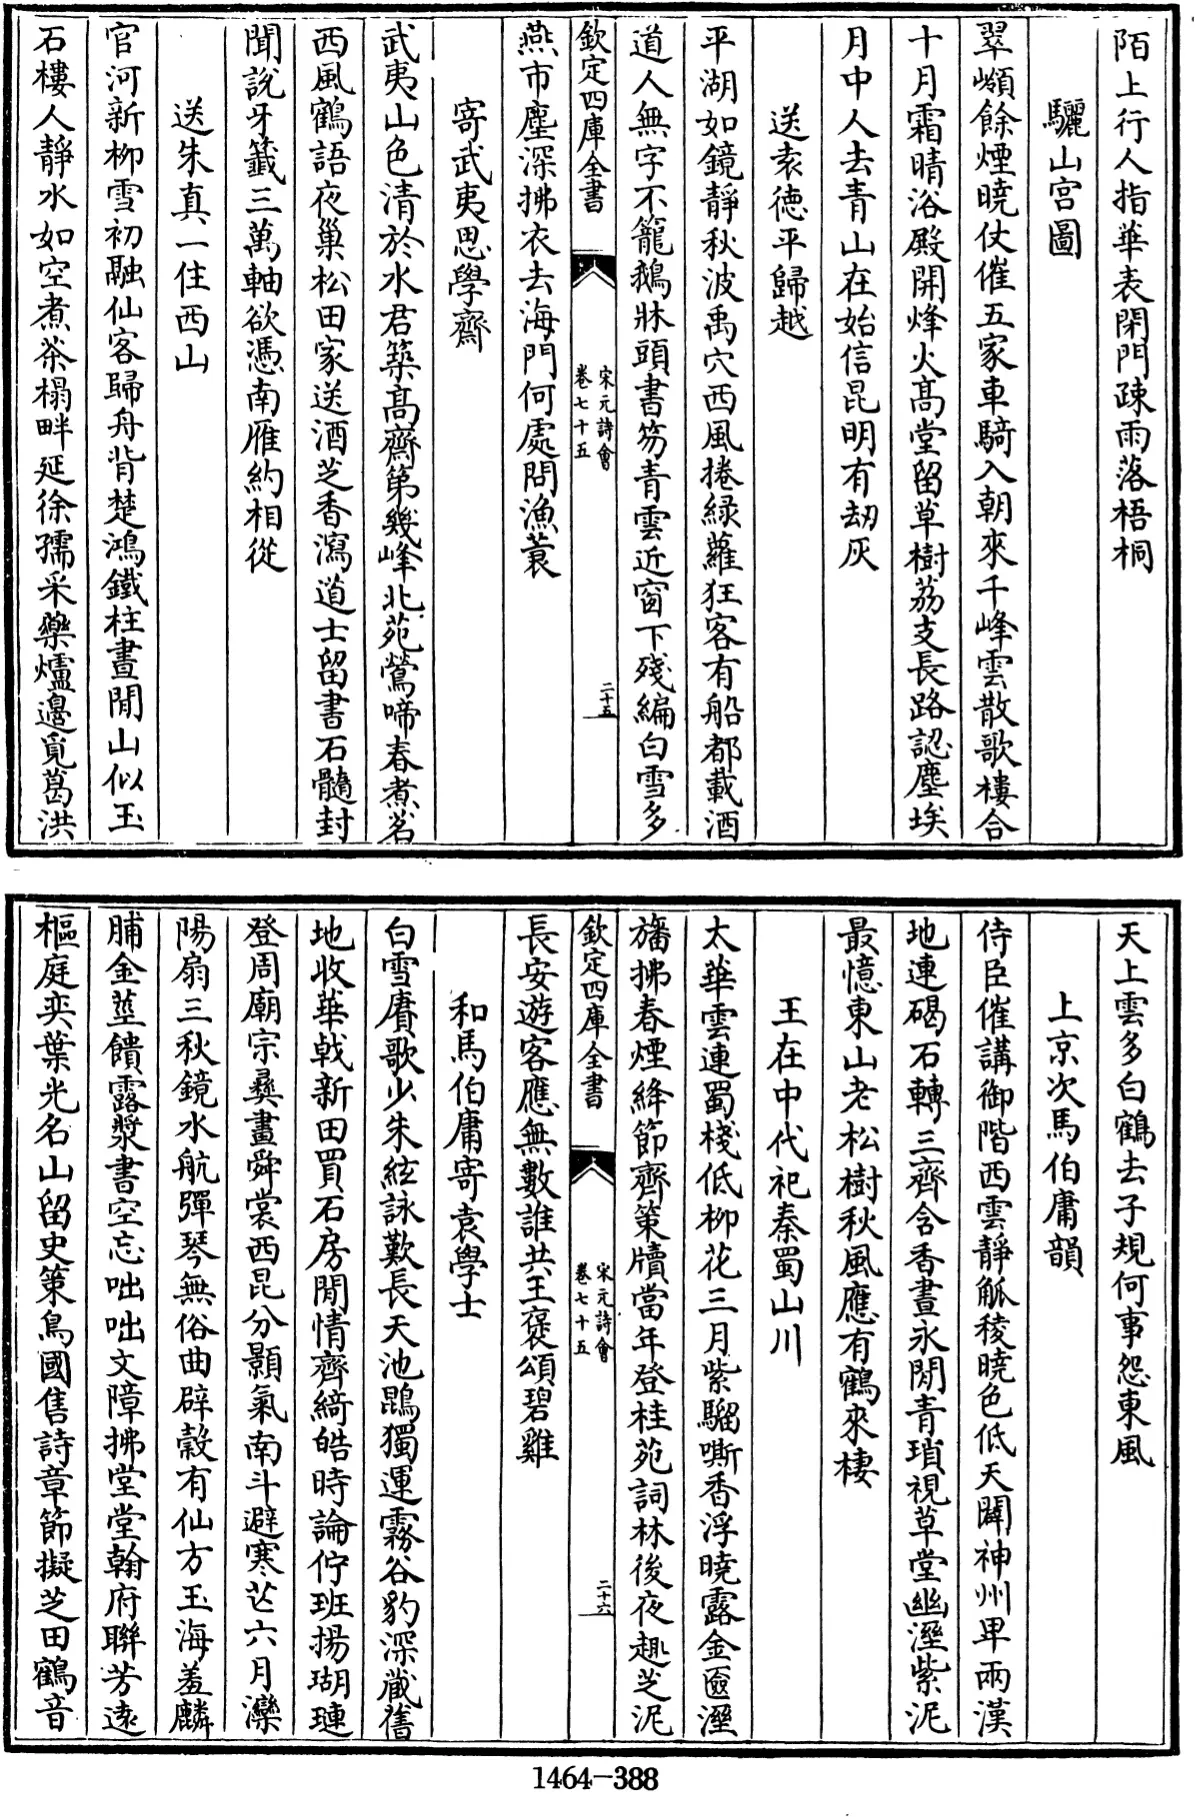 陌上行人指華表閉門疎雨落梧桐
驪山宫圖
翠嬪餘煙曉仗催五家車騎入朝來千峰雲散歌樓合
十月霜晴浴殿開烽火髙堂留草樹荔支長路認塵埃
月中人去青山在始信昆明有刼灰
送袁德平歸越
平湖如鏡靜秋波禹穴西風捲緑蘿狂客有船都載酒
道人無字不籠鵝牀頭書笏青雲近窗下殘編白雪多
欽定四庫全書
宋元詩會
卷七十五
二十五
燕市塵深拂衣去海門何處問漁蓑
寄武夷思學齋
武夷山色清於水君築髙齋第幾峰北苑鶯啼春煮茗
西風鶴語夜巢松田家送酒芝香瀉道士留書石髓封
聞説牙籖三萬軸欲憑南雁約相從
送朱真一住西山
官河新柳雪初融仙客歸舟背楚鴻鐵柱晝閒山似玉
石樓人靜水如空煮茶榻畔延徐孺采藥爐邊覓葛洪
天上雲多白鶴去子規何事怨東風
上京次馬伯庸韻
侍臣催講御階西雲靜觚稜曉色低天闢神州卑兩漢
地連碣石轉三齊含香晝永閒青瑣視草堂幽溼紫泥
最憶東山老松樹秋風應有鶴來棲
王在中代祀秦蜀山川
太華雲連蜀棧低柳花三月紫騮嘶香浮曉露金匳溼
旛拂春煙絳節齊策牘當年登桂苑詞林後夜趣芝泥
欽定四庫全書
宋元詩會
卷七十五
二十六
長安遊客應無數誰共王褒頌碧雞
和馬伯庸寄袁學士
白雪賡歌少朱絃詠歎長天池鵾獨運霧谷豹深藏舊
地收華戟新田買石房閒情齊綺皓時論佇班揚瑚璉
登周廟宗彝畫舜裳西昆分顥氣南斗避寒芒六月灤
陽扇三秋鏡水航彈琴無俗曲辟榖有仙方玉海羞麟
脯金莖饋露漿書空忘咄咄文障拂堂堂翰府聯芳逺
樞庭奕葉光名山留史策鳥國售詩章節擬芝田鶴音
1464-388